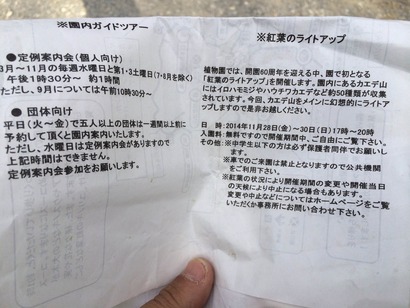 ※園内ガイドツアー
●定例案内会（個人向け）
3月～11月の毎週水曜日と第1・3土曜日(7・8月を除く)
午後1時30分～ 約1時間
ただし、9月については午前10時30分～
● 団体向け
平日(火～金)で五人以上の団体は一週間以上前に
予約して頂くと園内案内いたします。
ただし、水曜日は定例案内会がありますので
上記時間はできません。
定例案内会参加をお願いします。
※紅葉のライトアップ
植物園では、開園60周年を迎える中、園で初となる
「紅葉のライトアップ」を開催します。園内にあるカエデ山
にはイロハモミジやハウチワカエデなど約50種類が収集
されています。今回、カエデ山をメインに幻想的にライトア
ップしますので是非お越しください。
日 時：2014年11月28日(金)～30日(日)17時～20時
入園料：無料ですので開催期間中、ご自由にご覧下さい。
その他：※中学生以下の方は必ず保護者同伴でお願いし
ます。
※車でのご来園は禁止となりますので公共機関
をご利用下さい。
※紅葉の状況により開催期間の変更や開催当日
の天候により中止になる場合もあります。
変更や中止などについてはホームページをご覧
いただくか事務所にお問い合わせ下さい。